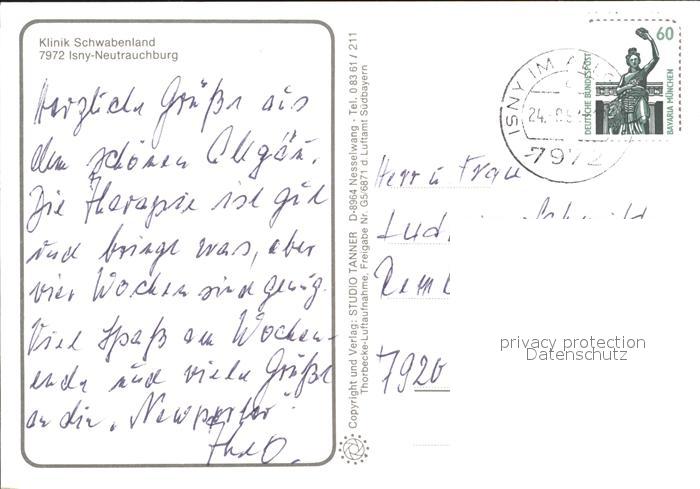 Klinik Schwabenland
7972 Isny-Neutrauchburg
Herzliche Grüße aus
dem schönen Allgäu.
Die Therapie ist gut
und bringt was, aber
vier Wochen sind genug.
Viel Spaß am Wochen-
ende und viele Grüße
an die „Newporter“
Copyright und Verlag: STUDIO TANNER D-8964 Nesselwang · Tel. 0 83 61 / 211
Thorbecke-Luftaufnahme, Freigabe Nr. G5/6871 d. Luftamt Südbayern
60
DEUTSCHE BUNDESPOST
BAVARIA MÜNCHEN
ISNY IM
24.
7972
Herr u Frau
Lud
7920
privacy protection
Datenschutz